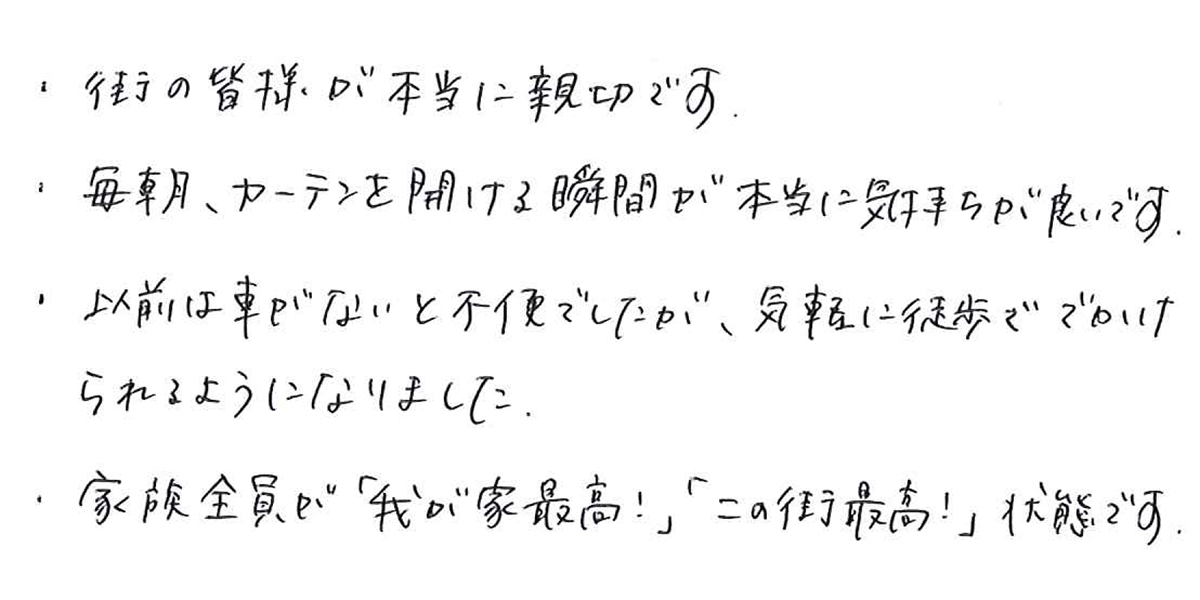 ・ 街の皆様が本当に親切です.
・ 毎朝、カーテンを開ける瞬間が本当に気持ちが良いです.
・ 以前は車がないと不便でしたが、気軽に徒歩ででかけ
られるようになりました.
・ 家族全員が「我が家最高!」「この街最高!」状態です.